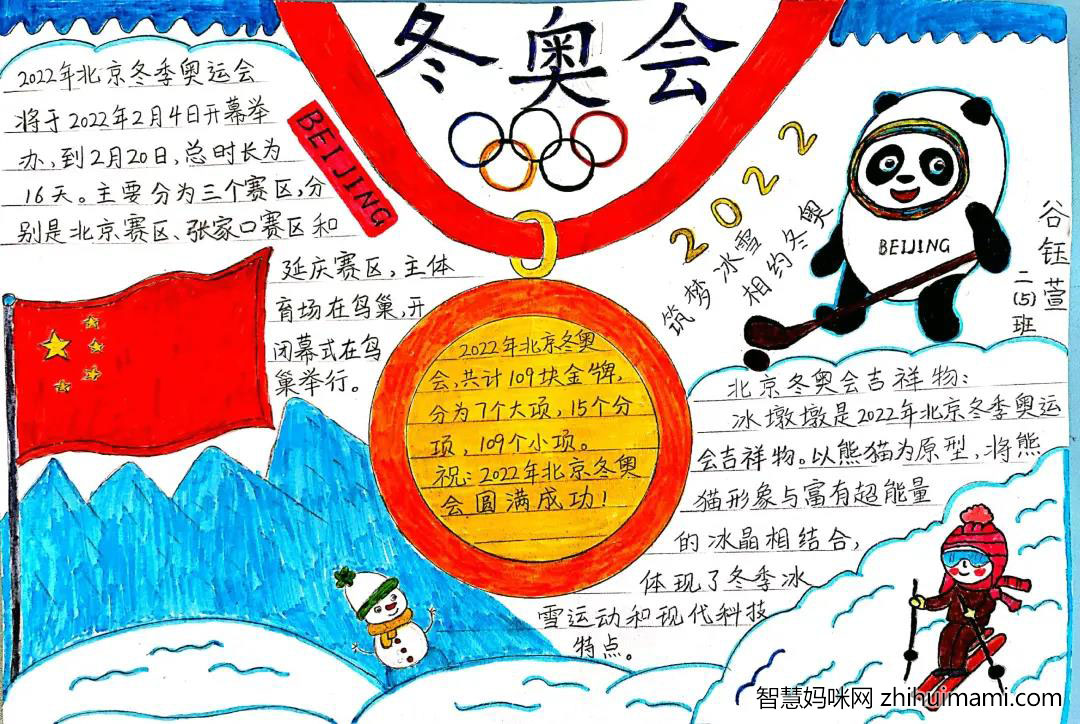 冬奥会
2022年北京冬季奥运会
将于2022年2月4日开幕举
办,到2月20日,总时长为
16天。主要分为三个赛区,分
别是北京赛区、张家口赛区和
延庆赛区,主体
育场在鸟巢,开
闭幕式在鸟
巢举行。
BEIJING
2022
筑梦冰雪
相约冬奥
BEIJING
谷钰萱
二(5)班
2022年北京冬奥
会,共计109块金牌,
分为7个大项,15个分
项,109个小项。
祝:2022年北京冬奥
会圆满成功!
北京冬奥会吉祥物:
冰墩墩是2022年北京冬季奥运
会吉祥物。以熊猫为原型,将熊
猫形象与富有超能量
的冰晶相结合,
体现了冬季冰
雪运动和现代科技
特点。
智慧妈咪网 zhihuimami.com